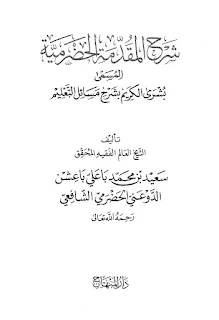 شرح المقدمة الحضرمية
المسمى
بشرى الكريم بشرح مسائل التعليم
تأليف
الشيخ العالم الفقيه المحقق
سعيد بن محمد باعلي باعشن
الدوعني الحضرمي الشافعي
رحمه الله تعالى
دار المنهاج